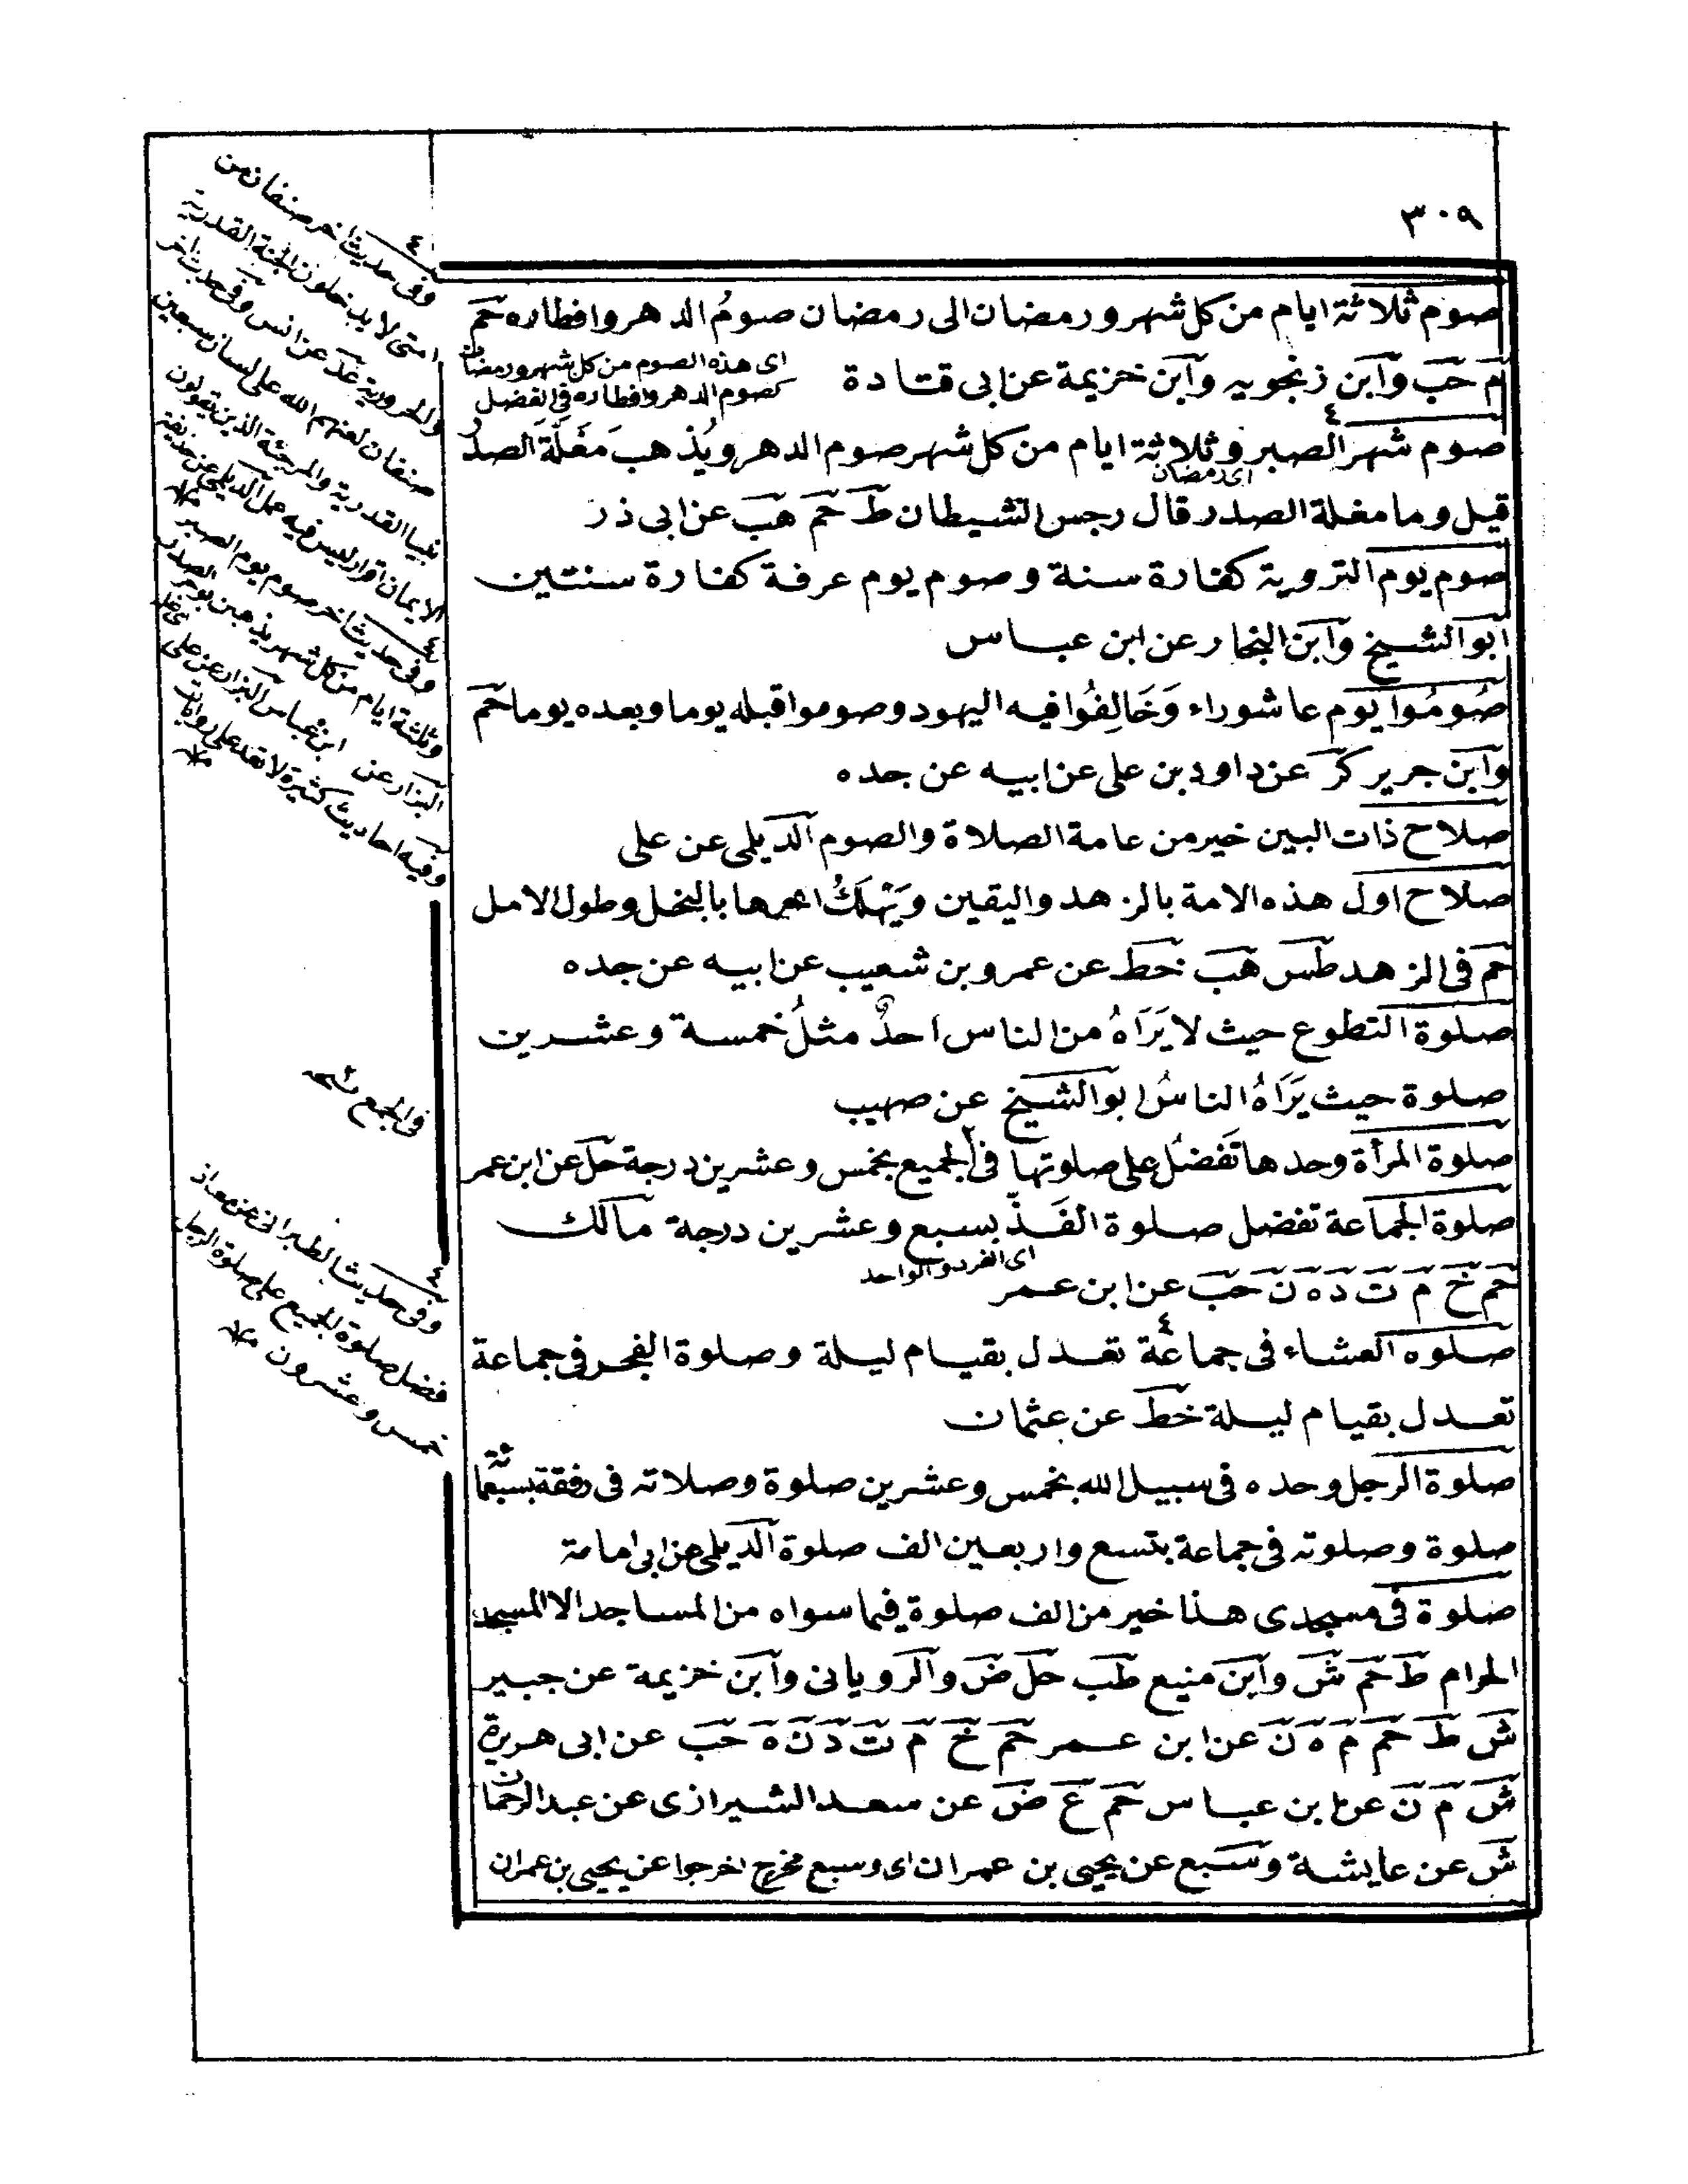 ٣٠٩
صوم ثلاثة ايام من كل شهر ورمضان الى رمضان صومُ الدهر وافطاره حم
م حب وابن زنجويه وابن خزيمة عن ابى قتادة
اى هذه الصوم من كل شهر ورمضان
كصوم الدهر وافطاره فى الفضل
صوم شهر الصبر وثلاثة ايام من كل شهر صوم الدهر ويُذهب مَغَلَّةَ الصدر
اى رمضان
قيل وما مغلة الصدر قال رجس الشيطان ط حم هب عن ابى ذر
صوم يوم التروية كفارة سنة وصوم يوم عرفة كفارة سنتين
ابو الشيخ وابن النجار عن ابن عباس
صُومُوا يوم عاشوراء وَخَالِفُوا فيه اليهود وصوموا قبله يوما وبعده يوما حم
وابن جرير كر عن داود بن على عن ابيه عن جده
صلاح ذات البين خير من عامة الصلاة والصوم الديلمى عن على
صلاح اول هذه الامة بالزهد واليقين ويَهْلَكُ اخرها بالبخل وطول الامل
حم فى الزهد طس هب خط عن عمرو بن شعيب عن ابيه عن جده
صلوة التطوع حيث لا يَرَاهُ من الناس احدٌ مثلُ خمسة وعشرين
صلوة حيث يَرَاهُ الناسُ ابو الشيخ عن صهيب
صلوة المرأة وحدها تَفضُل على صلوتها فى الجميع بخمس وعشرين درجة حل عن ابن عمر
صلوة الجماعة تفضل صلوة الفَذّ بسبع وعشرين درجة مالك
اى الفرد والواحد
حم خ م ت د ه ن حب عن ابن عمر
صلوه العشاء فى جماعة تعدل بقيام ليلة وصلوة الفجر فى جماعة
تعدل بقيام ليلة خط عن عثمان
صلوة الرجل وحده فى سبيل الله بخمس وعشرين صلوة وصلاته فى رفقة بسبعمائة
صلوة وصلوته فى جماعة بتسع واربعين الف صلوة الديلمى عن ابى امامة
صلوة فى مسجدى هذا خير من الف صلوة فيما سواه من المساجد الا المسجد
الحرام ط حم ش وابن منيع طب حل ض والرويانى وابن خزيمة عن جبير
ش ط حم م ه ن عن ابن عمر حم خ م ت د ن ه حب عن ابى هريرة
ش م ن عن ابن عباس حم ع ض عن سعد الشيرازى عن عبد الرحمان
ش عن عايشة وسبع عن يحيى بن عمران اى وسبع مخرج اخرجوا عن يحيى بن عمران
٤
وفى حديث اخر صنفان من
امتى لا يدخلون الجنة القدرية
والحرورية عد عن انس وفى حديث اخر
صنفان لعنهم الله على لسان سبعين
نبيا القدرية والمرجئة الذين يقولون
الايمان اقرار ليس فيه عمل الديلمى عن حذيفة
٤
وفى حديث اخر صوم يوم الصبر
وثلثة ايام من كل شهر يذهبن
البزار عن ابن عباس البزار عن على
وفيه احاديث كثيرة لا تعد
فى الجمع نسخه
٤
وفى حديث الطبرانى عن معاذ
فضل صلوة الجميع على صلوة الرجل
خمس وعشرون